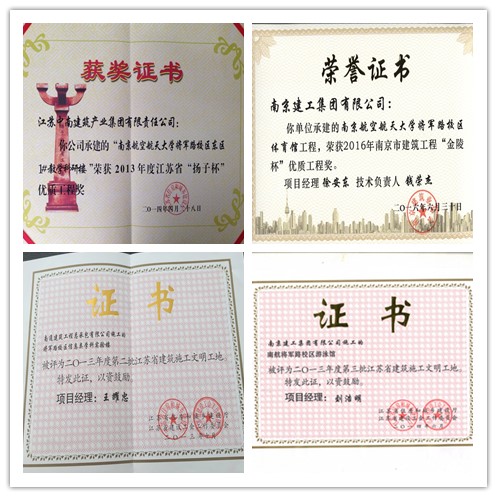 获奖证书
江苏中南建筑产业集团有限责任公司：
你公司承建的“南京航空航天大学将军路校区东区
1#教学科研楼”荣获2013年度江苏省“扬子杯”
优质工程奖
二〇一四年四月二十八日
荣誉证书
南京建工集团有限公司：
你单位承建的南京航空航天大学将军路校区
体育馆工程，荣获2016年南京市建筑工程“金陵
杯”优质工程奖。
项目经理 徐安东 技术负责人 钱荣杰
二〇一六年六月三十日
证书
南通建筑工程总承包有限公司施工的
被评为二〇一三年度第二批江苏省建筑施工文明工地。
特发此证，以资鼓励。
项目经理：王耀忠
证书
南京建工集团有限公司施工的
南航将军路校区游泳馆
被评为二〇一三年度第三批江苏省建筑施工文明工地。
特发此证，以资鼓励。
项目经理：刘浩明